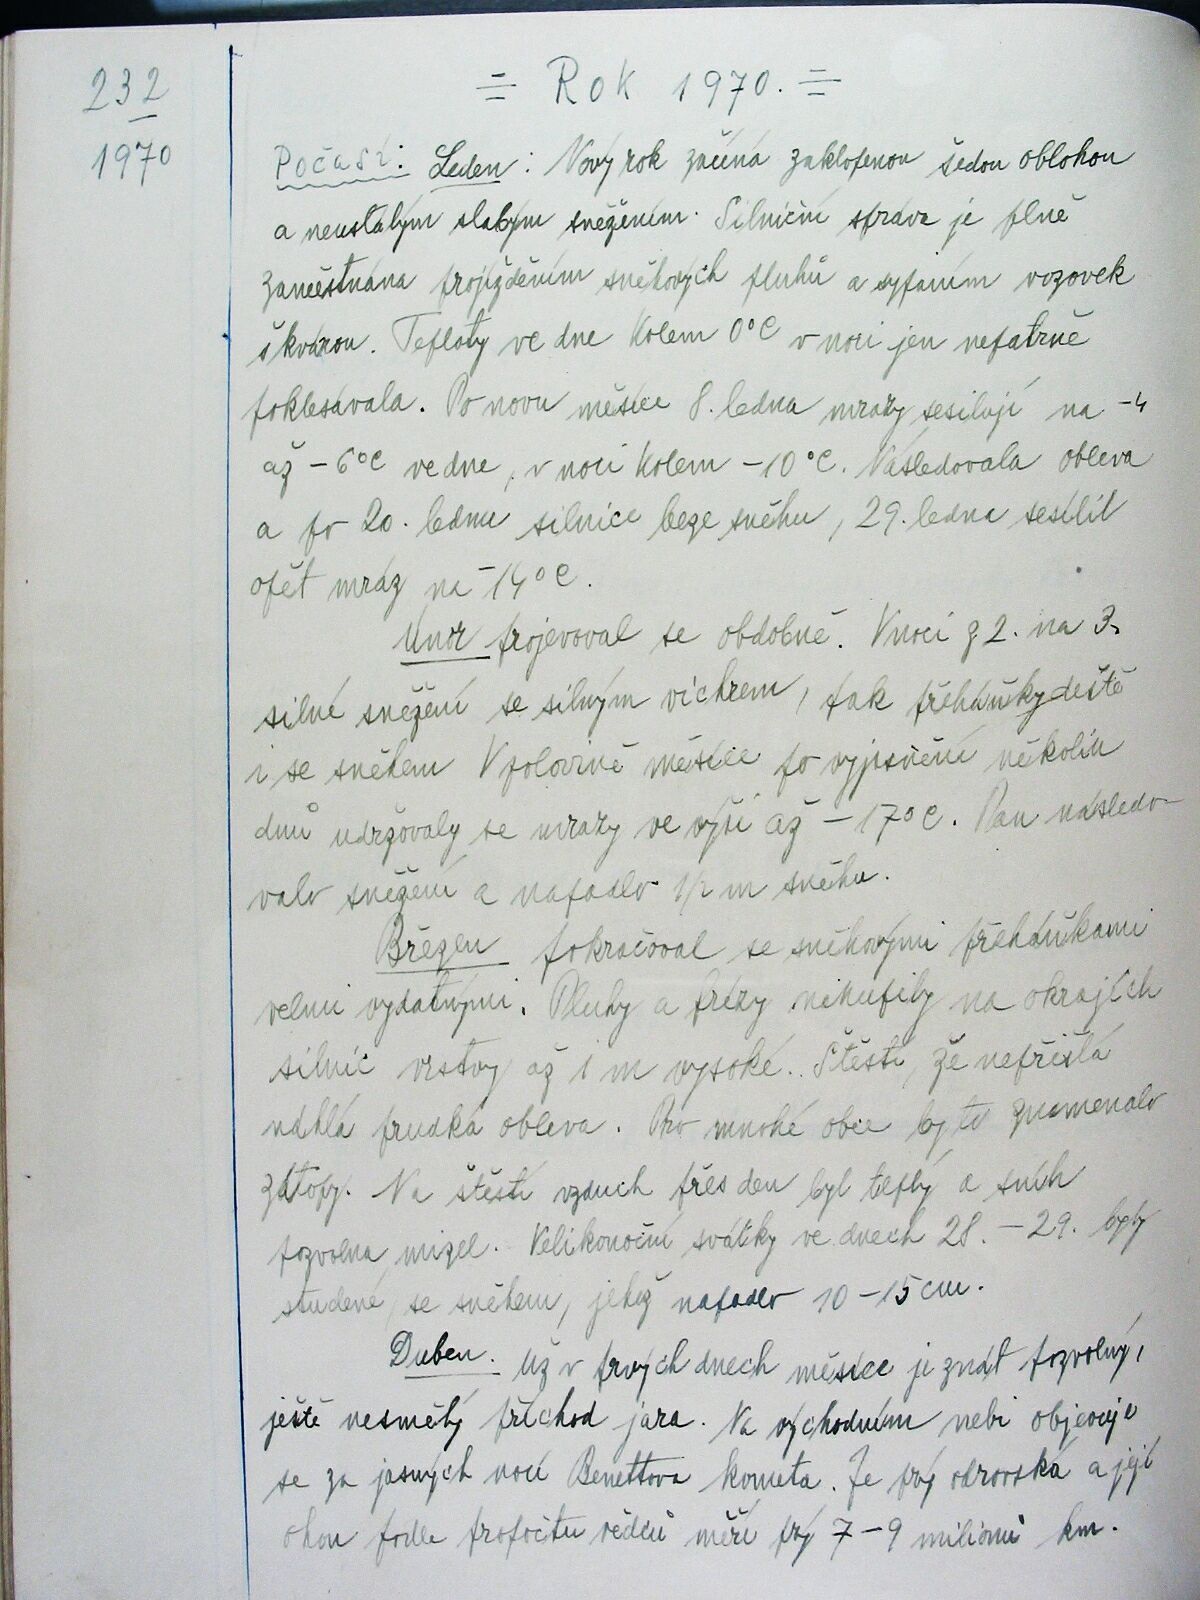 232
1970
= Rok 1970. =
Počasí: Leden: Nový rok začíná zaklopenou šedou oblohou
a neustálým slabým sněžením. Silniční správa je plně
zaměstnána projížděním sněhových pluhů a sypáním vozovek
škvárou. Teploty ve dne kolem 0°C v noci jen nepatrně
poklesávala. Po novu měsíce 8. ledna mrazy sesilují na -4
až -6°C ve dne, v noci kolem -10°C. Následovala obleva
a po 20. lednu silnice beze sněhu, 29. ledna sesílil
opět mráz na -14°C.
Únor projevoval se obdobně. V noci z 2. na 3.
silné sněžení se silným vichrem, pak přeháňky deště
i se sněhem V polovině měsíce po vyjasnění několik
dnů udržovaly se mrazy ve výši až -17°C. Pan násled-
valo sněžení a napadlo 1/2 m sněhu.
Březen pokračoval se sněhovými přeháňkami
velmi vydatnými. Pluhy a frézy nakupily na okrajích
silnic vrstvy až 1 m vysoké. Štěstí, že nepřišla
náhlá prudká obleva. Pro mnohé obce by to znamenalo
zátopy. Na štěstí vzduch přes den byl teplý a sníh
pozvolna mizel. Velikonoční svátky ve dnech 28. - 29. byly
studené, se sněhem, jehož napadlo 10-15 cm.
Duben. Už v prvých dnech měsíce je znát pozvolný,
ještě nesmělý příchod jara. Na východním nebi objevuje
se za jasných nocí Benettova kometa. Je prý obrovská a její
ohon podle propočtu vědců měří prý 7-9 milionů km.